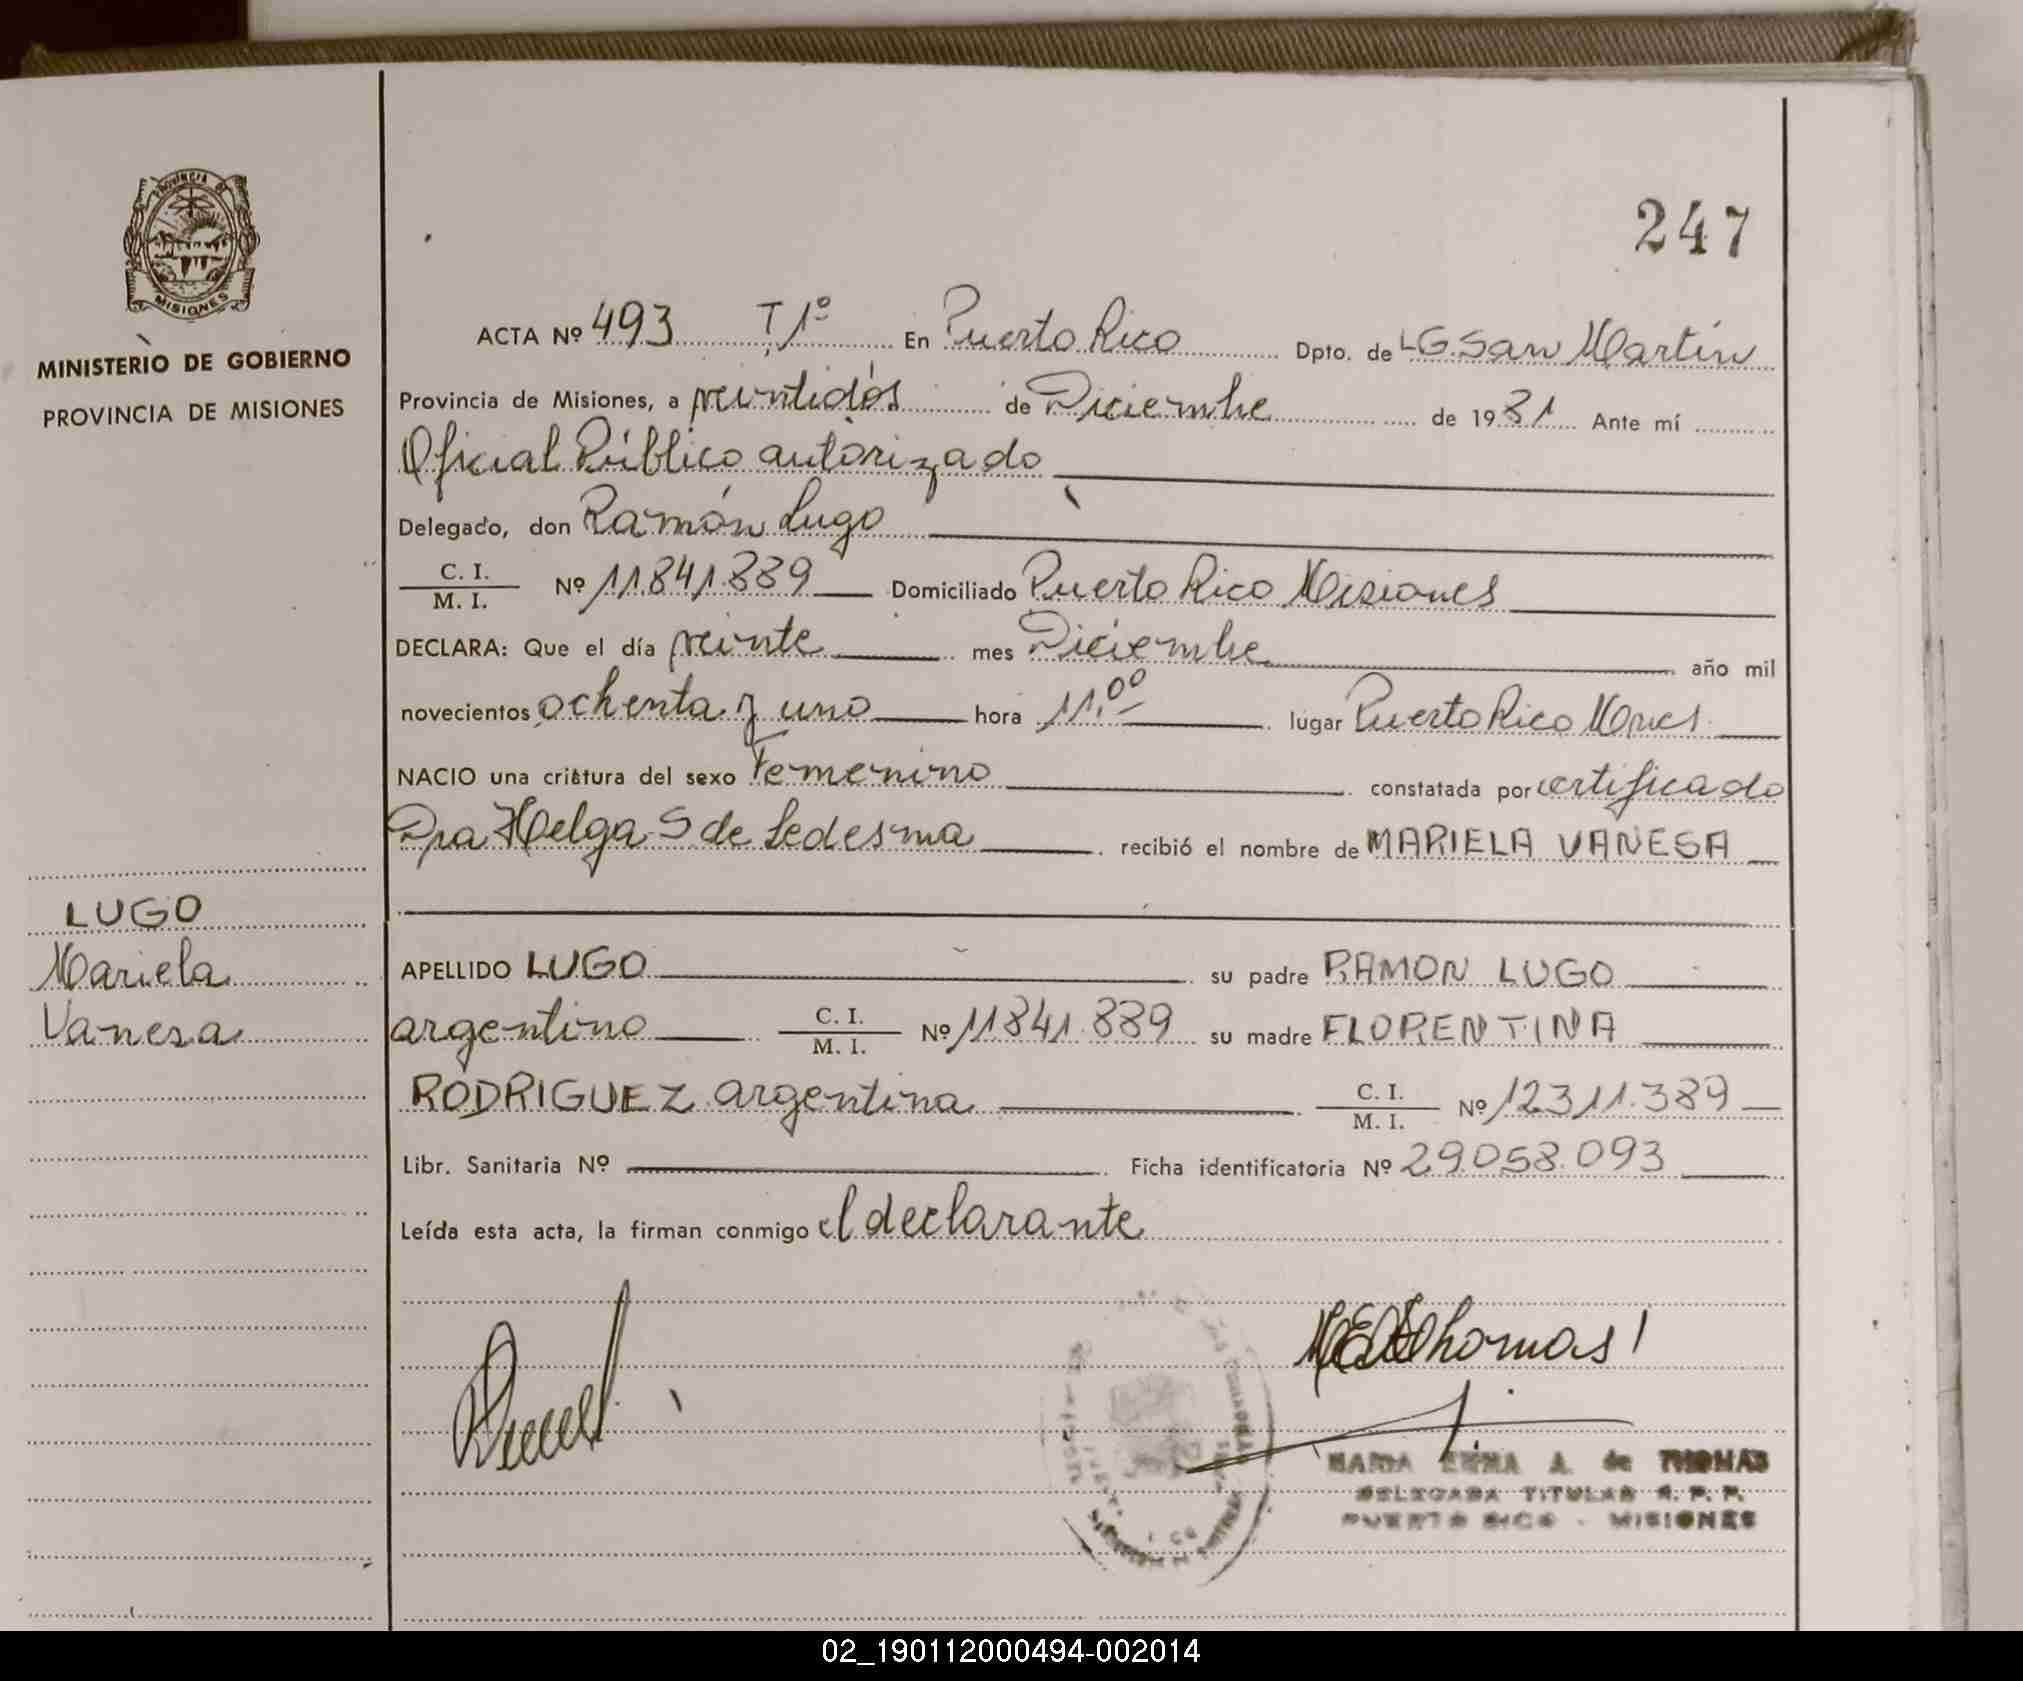 247
PROVINCIA DE
MISIONES
MINISTERIO DE GOBIERNO
PROVINCIA DE MISIONES
ACTA Nº 493 T1º En Puerto Rico Dpto. de LG.San Martín
Provincia de Misiones, a veintidós de Diciembre de 1981 Ante mí
Oficial Público autorizado
Delegado, don Ramón Lugo
C. I.
M. I. Nº 11.841.889 Domiciliado Puerto Rico Misiones
DECLARA: Que el día veinte mes Diciembre año mil
novecientos ochenta y uno hora 11,00 lugar Puerto Rico Mnes
NACIO una criatura del sexo Femenino constatada por certificado
Dra Helga S de Ledesma recibió el nombre de MARIELA VANESA
LUGO
Mariela
Vanesa
APELLIDO LUGO su padre RAMON LUGO
argentino C. I.
M. I. Nº 11841.889 su madre FLORENTINA
RODRIGUEZ argentina C. I.
M. I. Nº 12311.389
Libr. Sanitaria Nº Ficha identificatoria Nº 29.058.093
Leída esta acta, la firman conmigo el declarante
Thomas
MARIA A. de THOMAS
DELEGADA TITULAR R. P. P.
PUERTO RICO - MISIONES
02_190112000494-002014